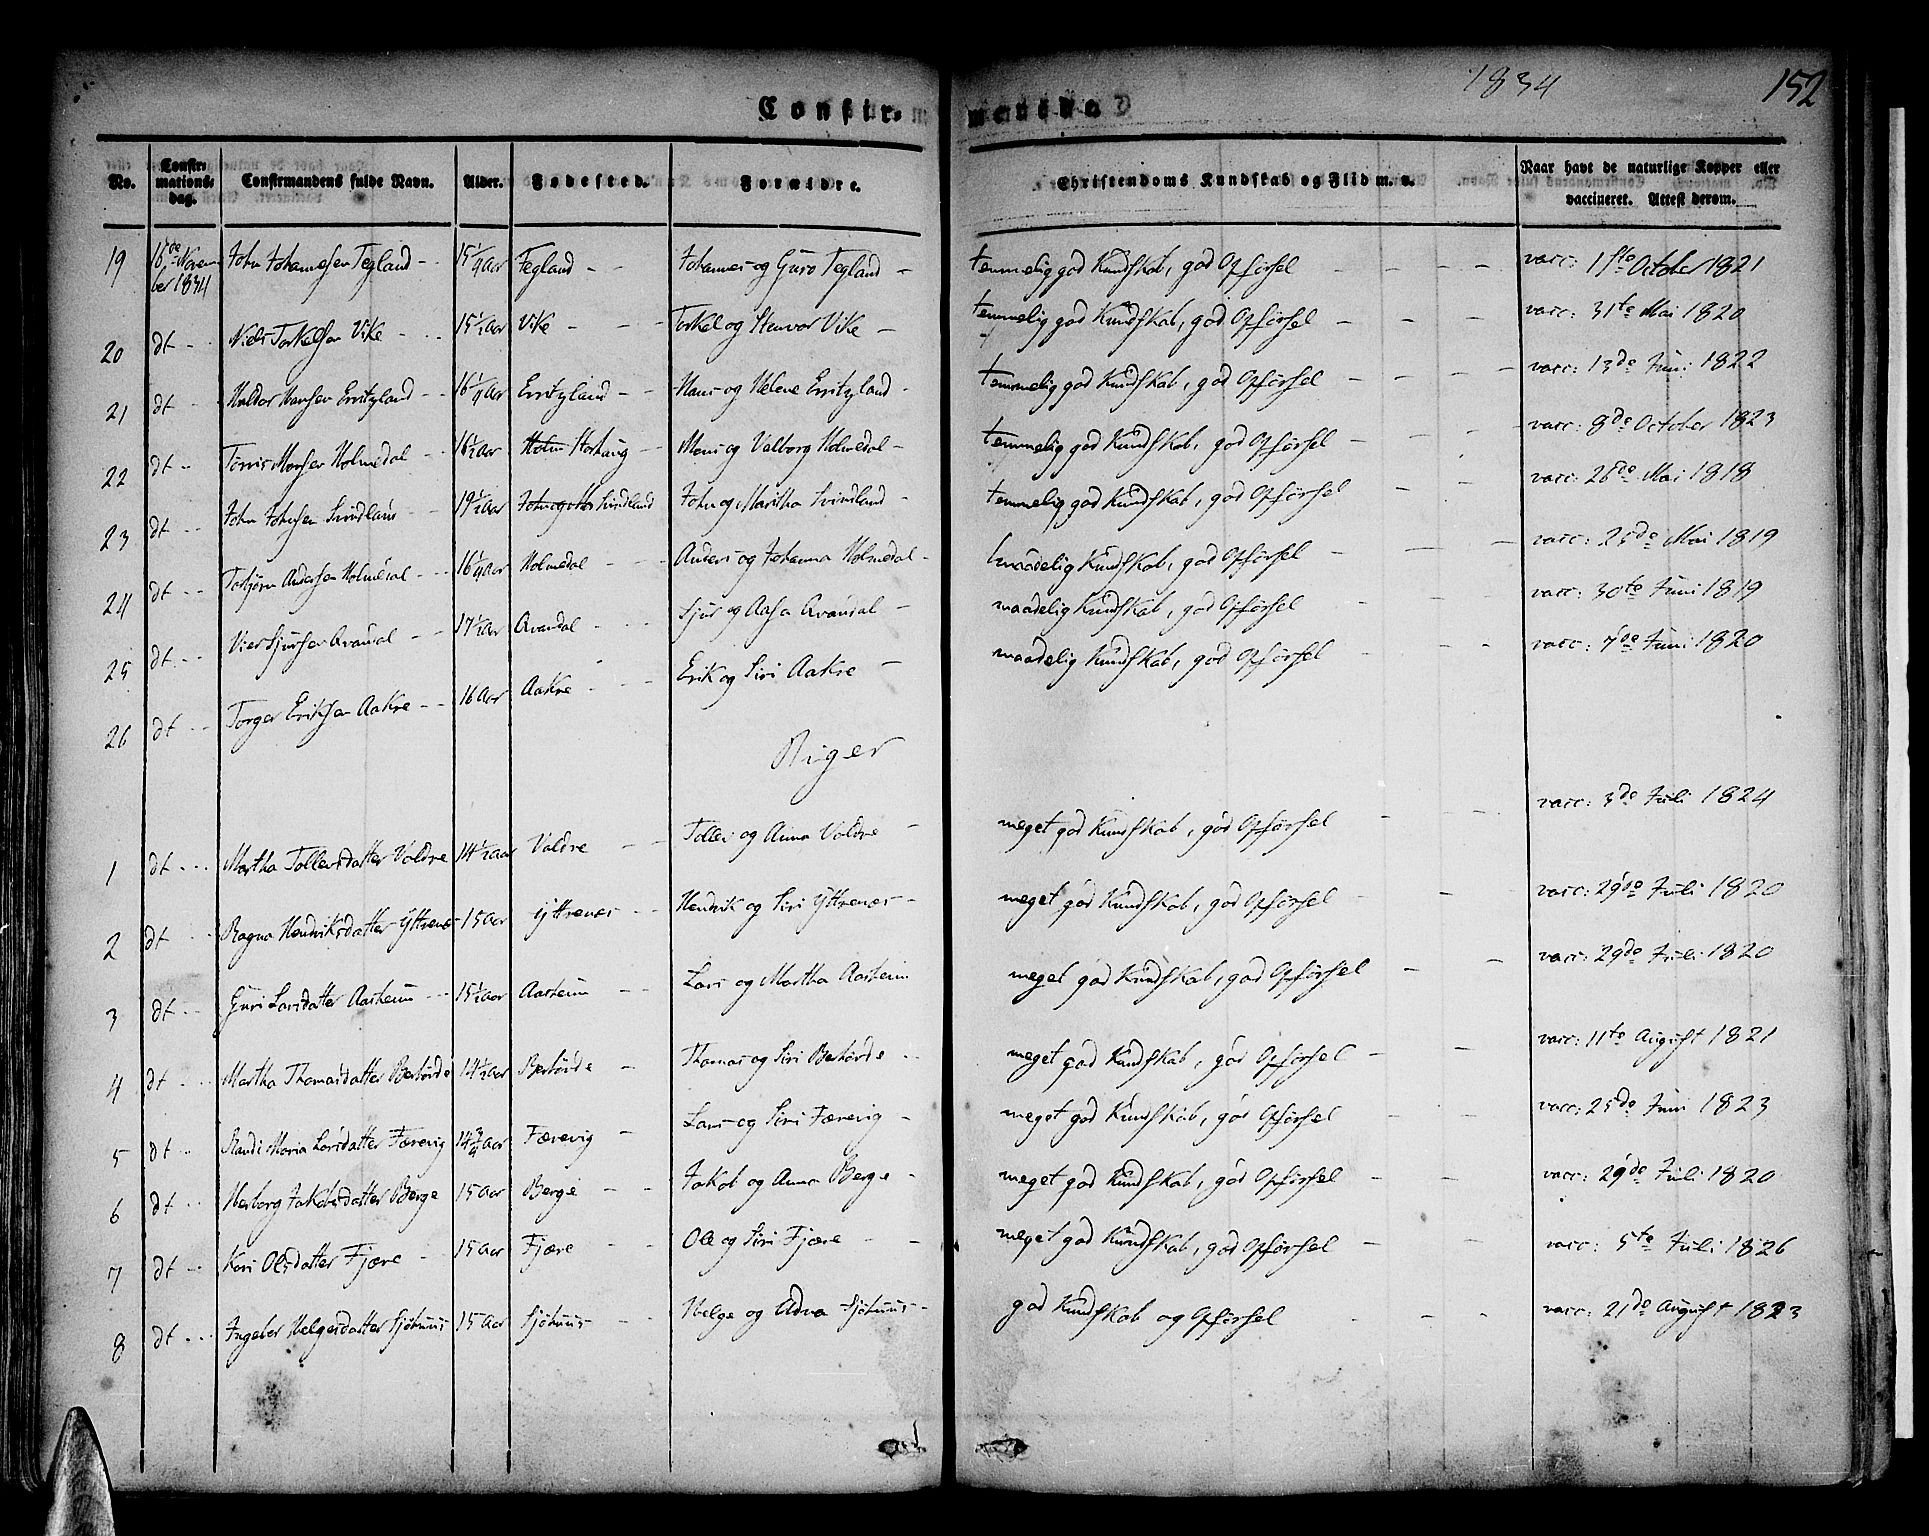 1834
152
Confir- mende.
No. Confir-mations-dag. Confirmandens fulde Navn. Alder. Fødested. Forældre. Christendoms Kundskab og Flid m. v. Naar havt de naturlige Kopper eller vaccineret. Attest derom.
19 16de Novem ber 1834 John Johannesen Tegland 15 1/4 Aar Tegland Johannes og Guro Tegland temmelig god Kundskab, god Opførsel vacc: 1ste October 1821
20 dt Niels Torkelsen Vike 15 1/2 Aar Vike Torkel og Stenvor Vike temmelig god Kundskab, god Opførsel vacc: 31te Mai 1820
21 dt Haldor Hansen 16 1/4 Aar Hans og Helene temmelig god Kundskab, god Opførsel vacc: 13de Juni 1822
22 dt Tørris Monsen Holmedal 16 1/2 Aar Holm Storhaug Mons og Valborg Holmedal temmelig god Kundskab, god Opførsel vacc: 8de October 1823
23 dt John Johnsen Svindland 19 1/2 Aar John og Ma Svindland John og Maritha Svindland temmelig god Kundskab, god Opførsel vacc: 26de Mai 1818
24 dt Torbjørn Andersen Holmedal 16 1/4 Aar Holmedal Anders og Johanna Holmedal maadelig Kundskab, god Opførsel vacc: 25de Mai 1819
25 dt Vier Sjursen Qvandal 17 1/2 Aar Qvandal Sjur og Aasa Qvandal maadelig Kundskab, god Opførsel vacc: 30te Juni 1819
26 dt Torger Eriksen Aakre 16 Aar Aakre Erik og Siri Aakre maadelig Kundskab, god Opførsel vacc: 7de Juni 1820
Piger
1 dt Martha Tollevsdatter Valdre 14 1/2 Aar Valdre Tollev og Anna Valdre meget god Kundskab, god Opførsel vacc: 3de Juli 1824
2 dt Ragna Hendriksdatter Yttrenæs 15 Aar Yttrenæs Hendrik og Siri Yttrenæs meget god Kundskab, god Opførsel vacc: 29de Juli 1820
3 dt Guri Larsdatter Aarheim 15 1/2 Aar Aarheim Lars og Martha Aarheim meget god Kundskab, god Opførsel vacc: 29de Juli 1820
4 dt Martha Thomasdatter 14 1/2 Aar Thomas og Siri meget god Kundskab, god Opførsel vacc: 11te August 1821
5 dt Randi Maria Larsdatter Færevig 14 3/4 Aar Færevig Lars og Siri Færevig meget god Kundskab, god Opførsel vacc: 25de Juni 1823
6 dt Herborg Jakobsdatter Berge 15 Aar Berge Jakob og Anna Berge meget god Kundskab, god Opførsel vacc: 29de Juli 1820
7 dt Kari Olsdatter Fjære 15 Aar Fjære Ole og Siri Fjære meget god Kundskab, god Opførsel vacc: 5te Juli 1826
8 dt Ingebor Helgesdatter Sjøhuus 15 Aar Sjøhuus Helge og Adva Sjøhuus god Kundskab og Opførsel vacc: 21de August 1823